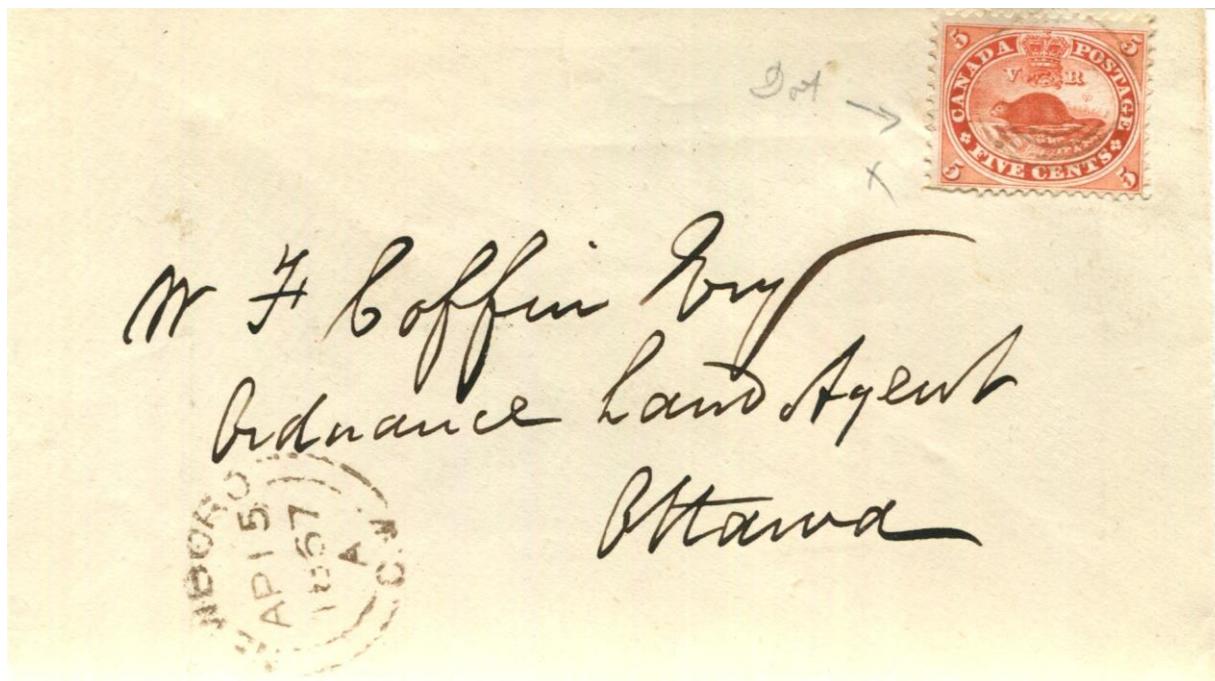 5 CANADA POSTAGE 5
V R
5 FIVE CENTS 5
Dot
x
W F Coffin Esq
Ordnance Land Agent
Ottawa
AP 15
1867
A
C.W